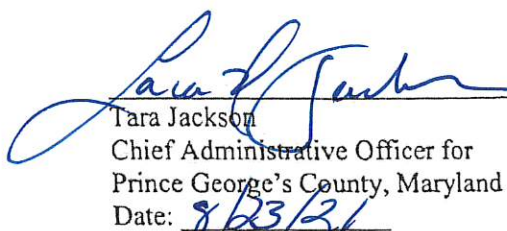 Tara Jackson
Tara Jackson
Chief Administrative Officer for
Prince George's County, Maryland
Date: 8/23/21